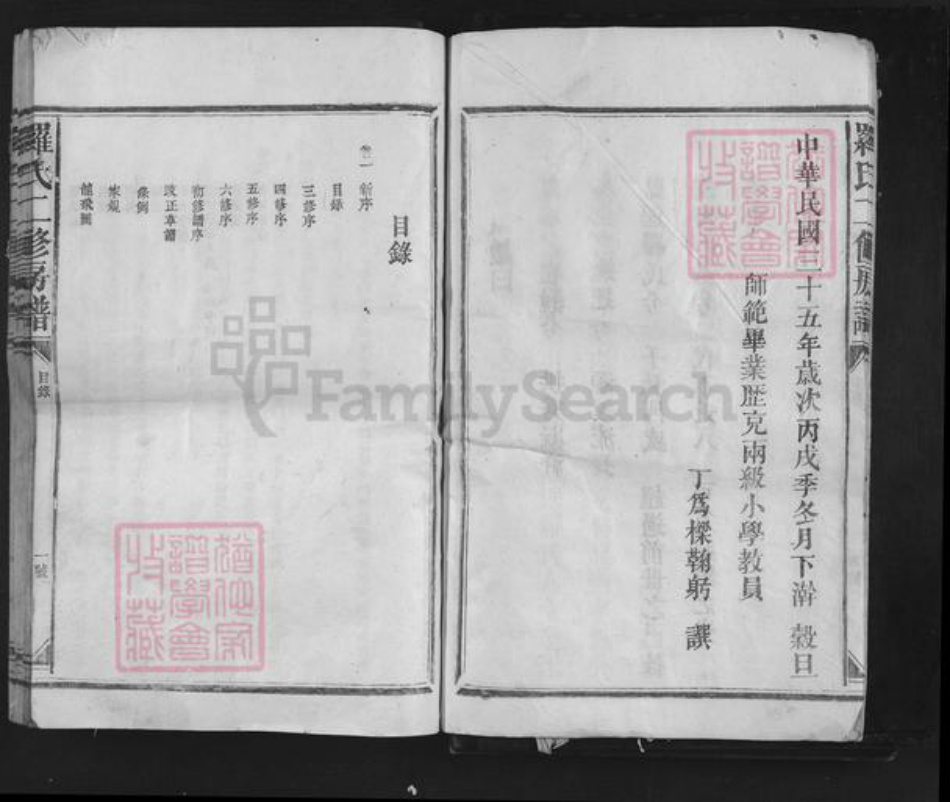 中華民國三十五年歲次丙戌季冬月下澣 穀旦
師範畢業歷充兩級小學教員
丁爲樑鞠躬 譔
羅氏二修房譜
目錄
卷一 新序
目錄
三修序
四修序
五修序
六修序
初修譜序
改正草譜
條例
家規
羅氏二修房譜
目錄
一號
譜學會
收藏
譜學會
收藏
FamilySearch